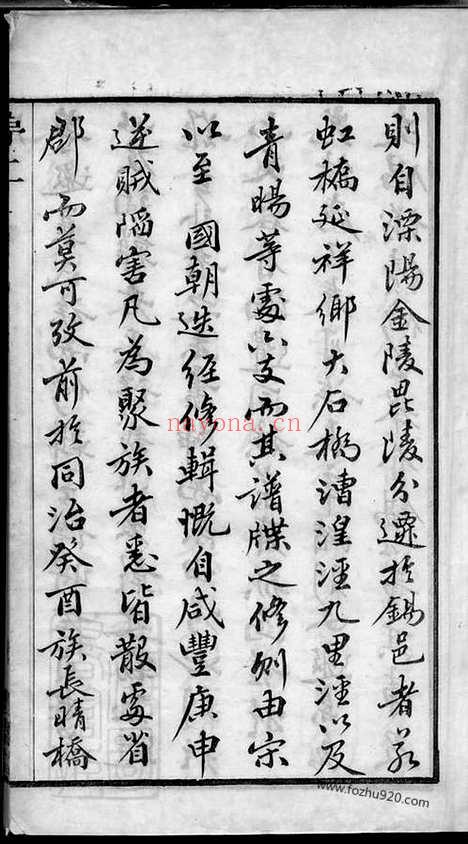 則自溧陽金陵毘陵分遷於錫邑者若
虹橋延祥鄉大石橋漕湟涇九里涇以及
青暘等處六支而其譜牒之修則由宋
以至 國朝迭經修輯慨自咸豐庚申
逆賊陷害凡為聚族者悉皆散處省
郡 而莫可攷前於同治癸酉族長晴橋
nayona.cn
www.fozhu920.com